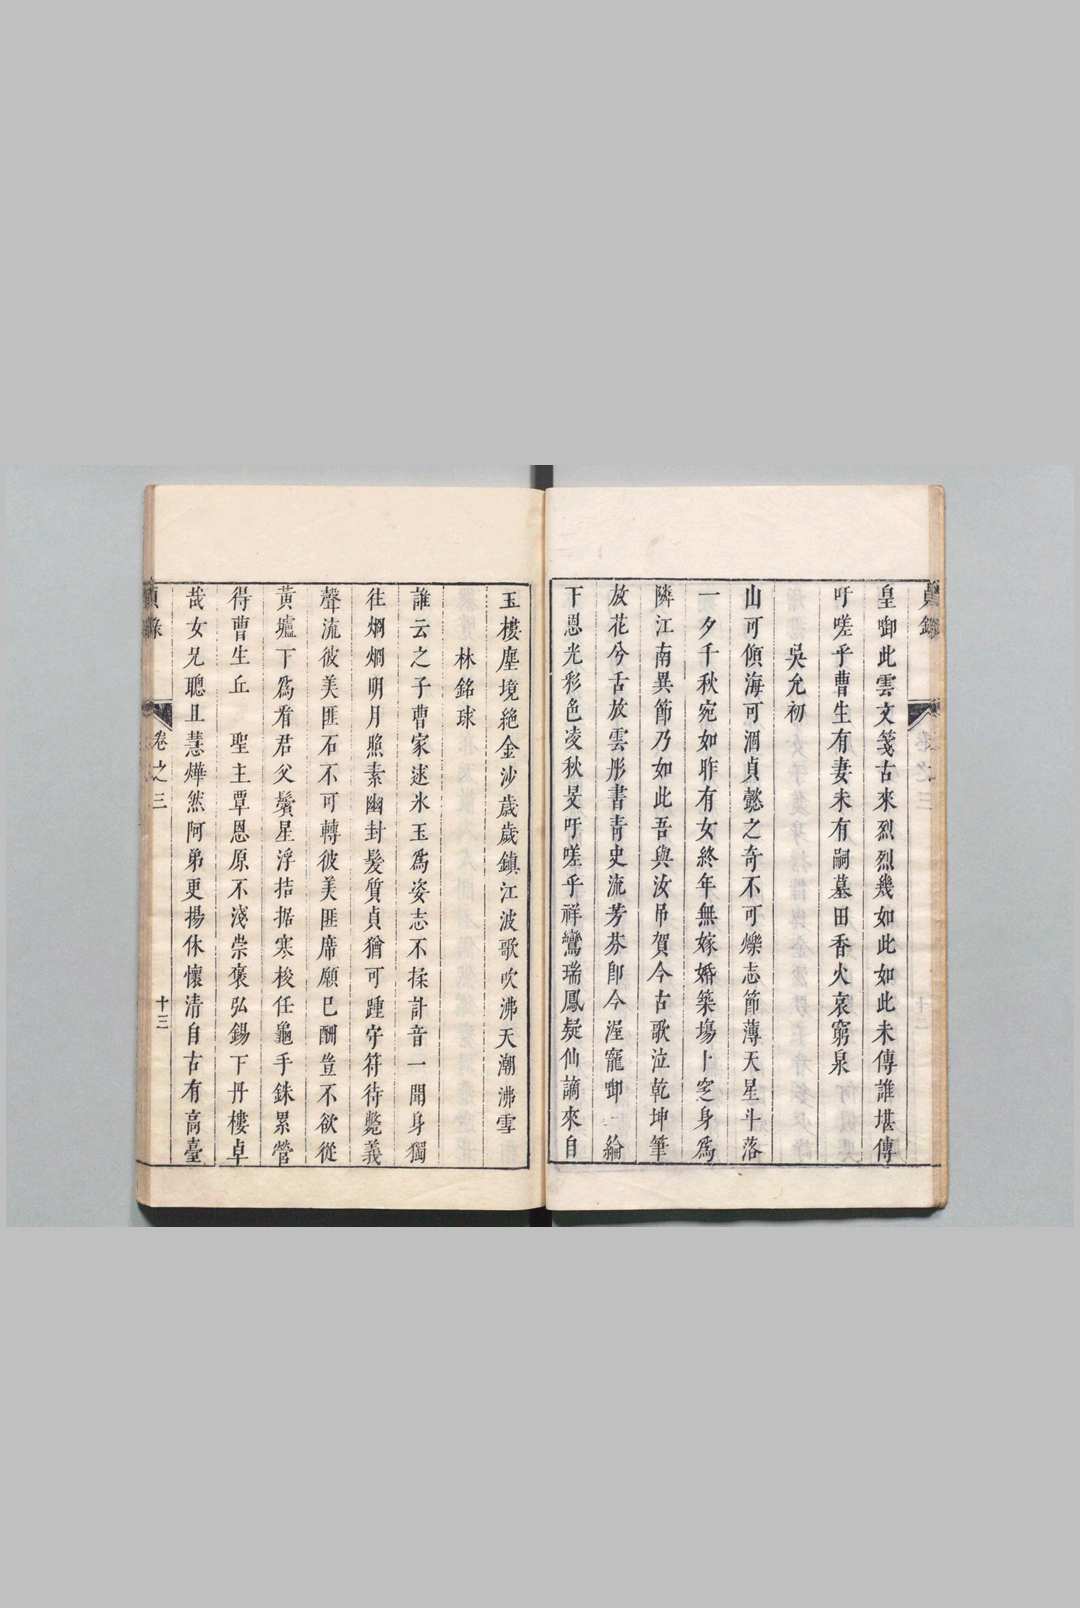 貞錄
皇啣此雲文箋古來烈烈幾如此如此未傳誰堪傳
吁嗟乎曹生有妻未有嗣墓田香火哀窮泉
吳允初
山可傾海可涸貞懿之奇不可爍志節薄天星斗落
一夕千秋宛如昨有女終年無嫁婚築塲卜窆身爲
隣江南異節乃如此吾與汝吊賀今古歌泣乾坤筆
放花兮舌放雲彤書青史流芳芬卽今渥寵啣一綸
下恩光彩色凌秋旻吁嗟乎祥鸞瑞鳳疑仙謫來自
玉樓塵境絕金沙歲歲鎮江波歌吹沸天潮沸雪
林銘球
誰云之子曹家逑氷玉爲姿志不揉訃音一聞身獨
徃烱烱明月照素幽封髮質貞猶可踵守符待斃義
聲流彼美匪石不可轉彼美匪席願已酬豈不欲從
黃壚下爲看君父鬢星浮拮据寒梭任龜手銖累營
得曹生丘 聖主覃恩原不淺崇褒弘錫下丹樓卓
哉女兄聰且慧燁然阿弟更揚休懷清自古有高臺
貞錄
卷之三
十三